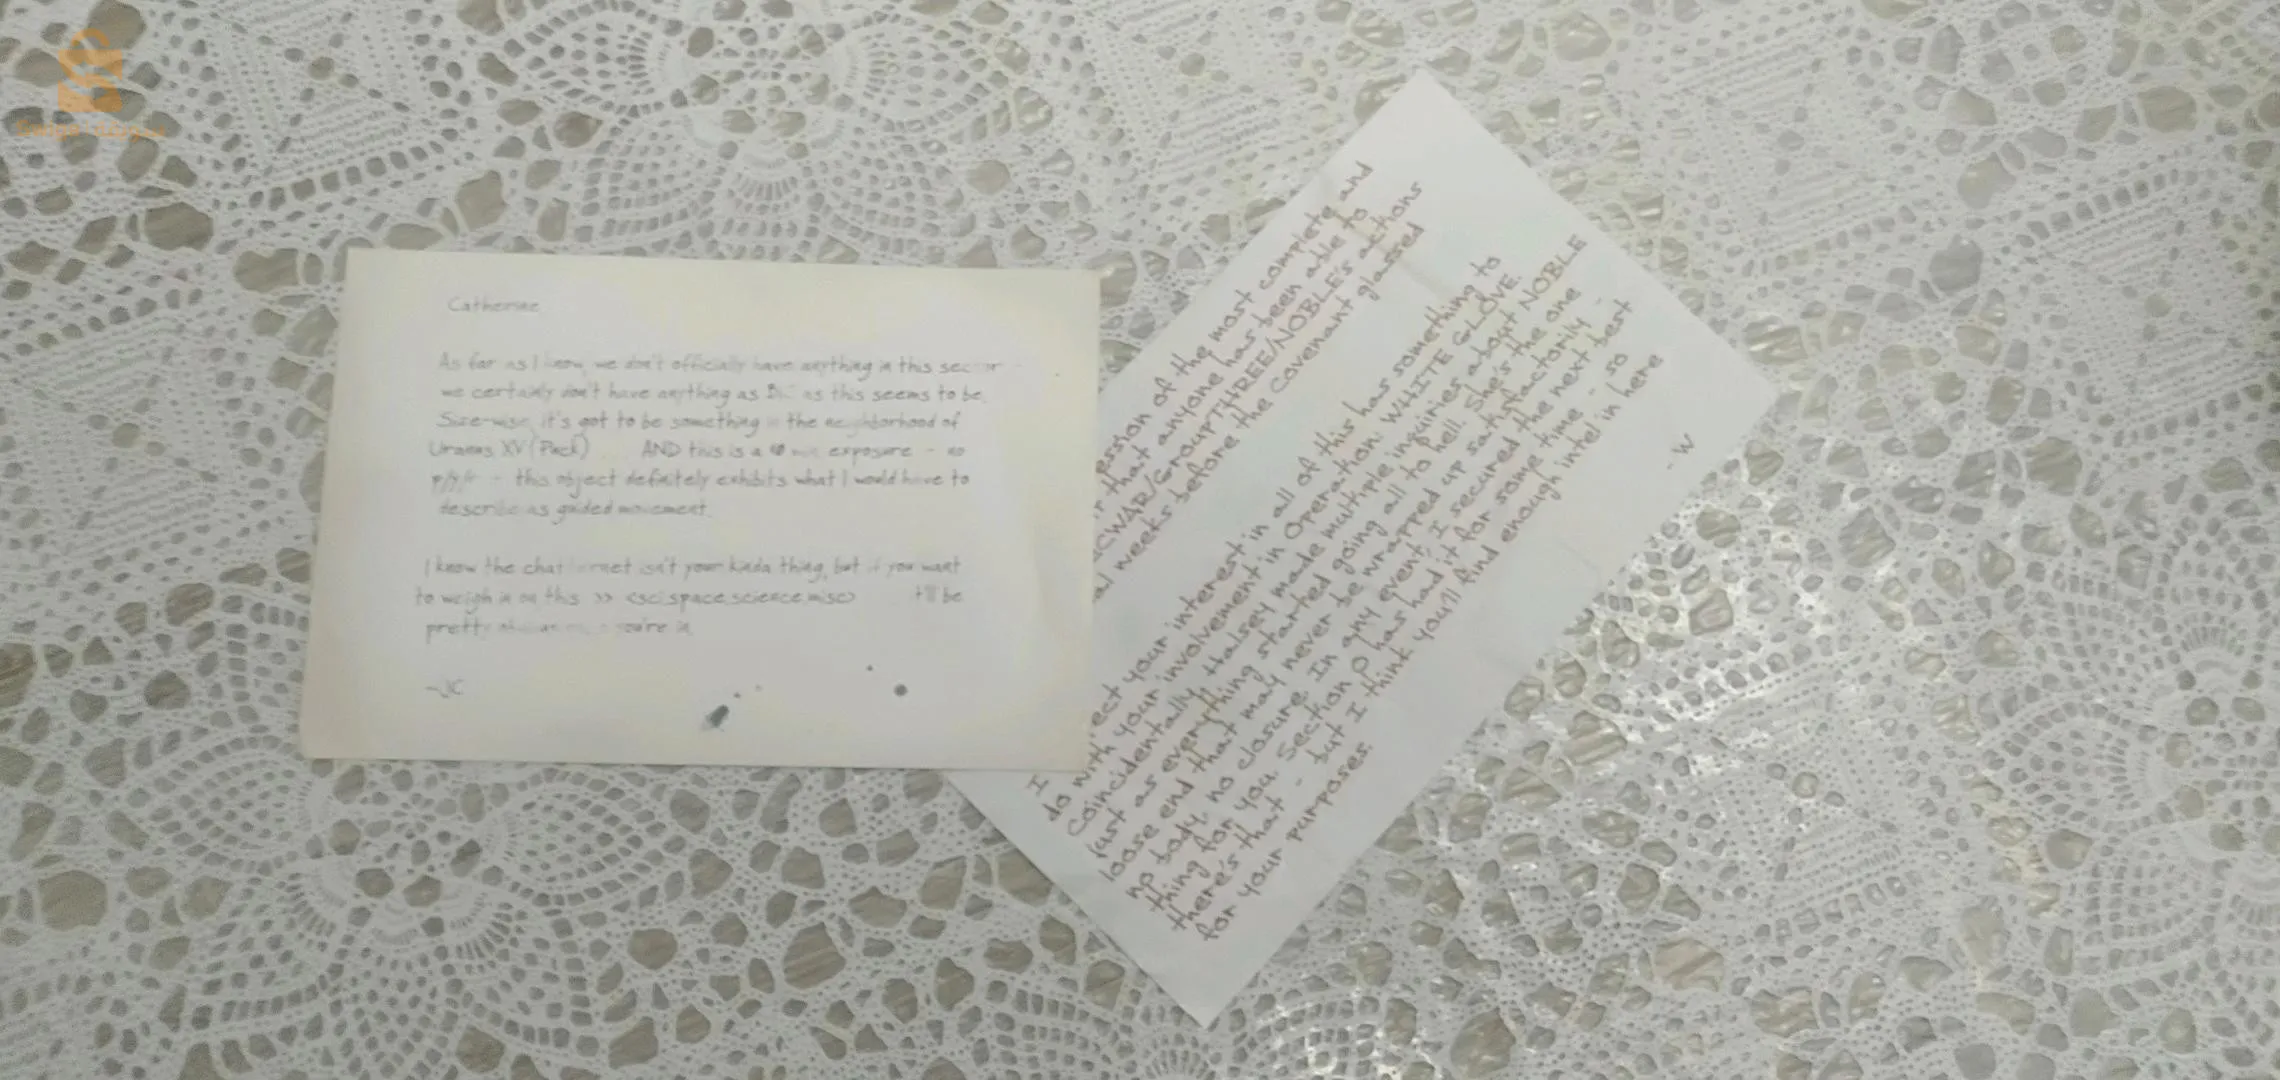 Catherine
As far as I know, we don't officially have anything in this sector
we certainly don't have anything as as this seems to be.
Size-wise, it's got to be something in the neighborhood of
Uranus XV (Puck) AND this is a exposure - no
- this object definitely exhibits what I would have to
describe as guided movement.
I know the chat isn't your kinda thing, but if you want
to weigh in on this >> <sci.space.science.misc> it'll be
pretty you're in.
-JC
of the most complete and
that anyone has been able to
/GROUPTHREE/NOBLE's actions
weeks before the Covenant glassed
I your interest in all of this has something to
do with your involvement in Operation: WHITE GLOVE.
Coincidentally, Halsey made multiple inquiries about NOBLE
just as everything started going all to hell. She's the one
loose end that may never be wrapped up satisfactorily -
no body, no closure. In any event, I secured the next best
thing for you. Section has had it for some time - so
there's that - but I think you'll find enough intel in here
for your purposes.
-W